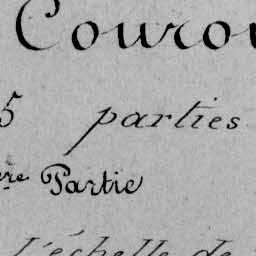 Couro
5 parties
ère Partie
l'échelle de